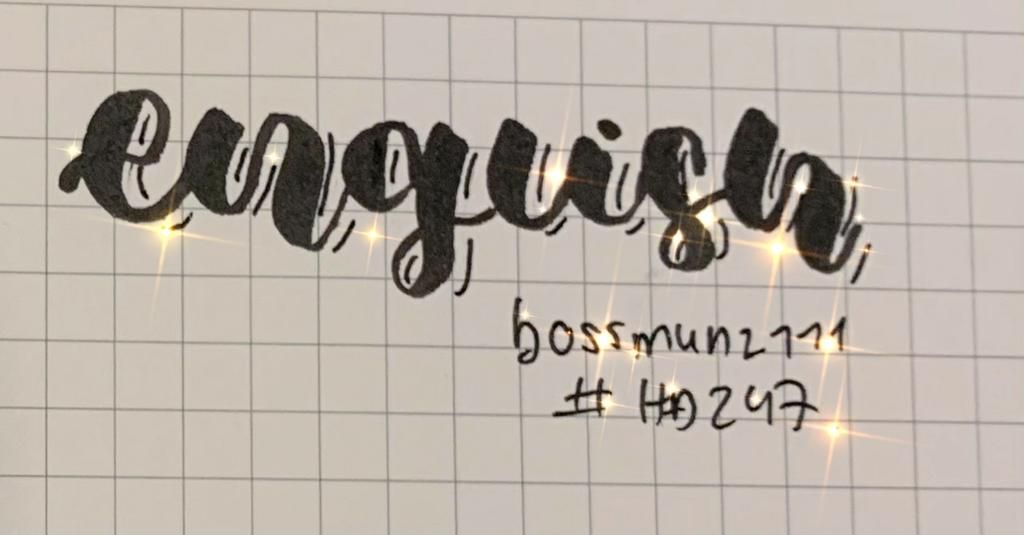 enguish
bossmun2111
# HD247